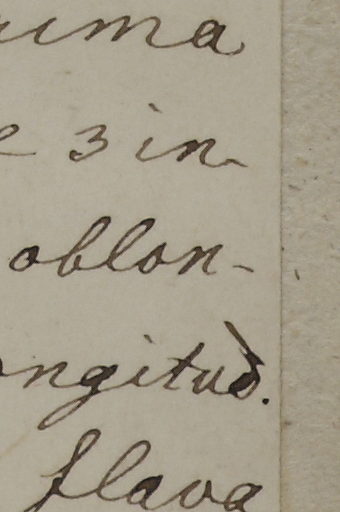 uma
e 3 in
oblon-
ongitud.
flava